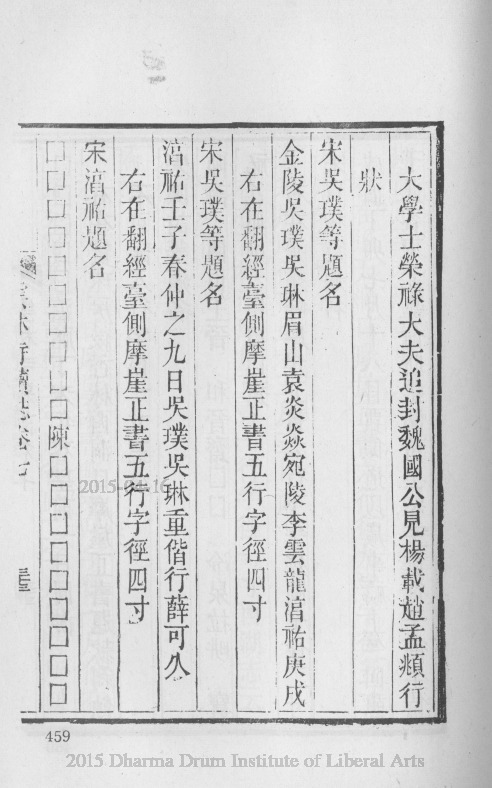 大學士榮祿大夫追封魏國公見楊載趙孟頫行
狀
宋吳璞等題名
金陵吳璞吳琳眉山袁炎焱宛陵李雲龍淯祐庚戌
右在翻經臺側摩崖正書五行字徑四寸
宋吳璞等題名
淯祐壬子春仲之九日吳璞吳琳重偕行薛可久
右在翻經臺側摩崖正書五行字徑四寸
宋淯祐題名
□□□□□□□□□□陳□□□□□□□□□
林寺續志卷七
459
2015-04-16
2015 Dharma Drum Institute of Liberal Arts